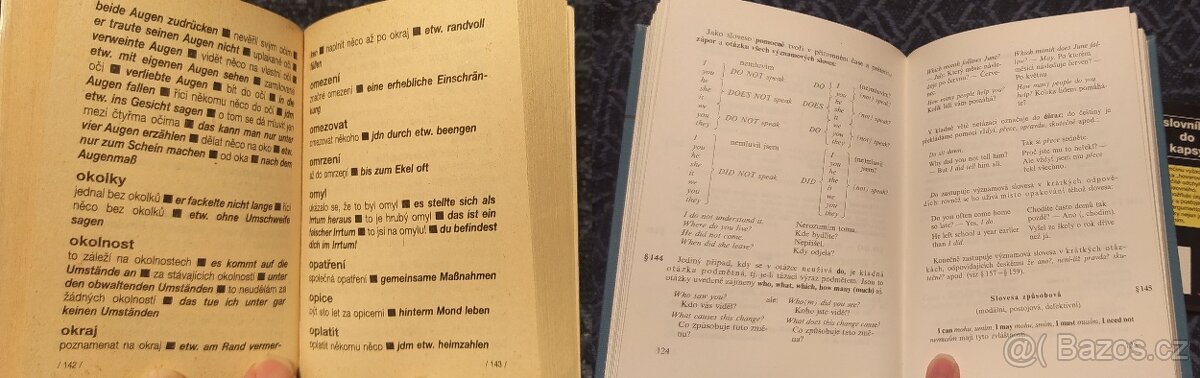 beide Augen zudrücken ■ nevěřil svým očím
er traute seinen Augen nicht ■ uplakané oči
verweinte Augen ■ vidět něco na vlastní oči
etw. mit eigenen Augen sehen ■ zamilované
oči ■ verliebte Augen ■ bít do očí ■ in die
Augen fallen ■ říci někomu něco do očí ■ jdm
etw. ins Gesicht sagen ■ o tom se dá mluvit jen
mezi čtyřma očima ■ das kann man nur unter
vier Augen erzählen ■ dělat něco na oko ■ etw.
nur zum Schein machen ■ od oka ■ nach dem
Augenmaß
okolky
jednal bez okolků ■ er fackelte nicht lange ■ říci
něco bez okolků ■ etw. ohne Umschweife
sagen
okolnost
to záleží na okolnostech ■ es kommt auf die
Umstände an ■ za stávajících okolností ■ unter
den obwaltenden Umständen ■ to neudělám za
žádných okolností ■ das tue ich unter gar
keinen Umständen
okraj
poznamenat na okraj ■ etw. am Rand vermer-
/ 142 /
ken ■ naplnit něco až po okraj ■ etw. randvoll
füllen
omezení
značné omezení ■ eine erhebliche Einschrän-
kung
omezovat
omezovat někoho ■ jdn durch etw. beengen
omrzení
až do omrzení ■ bis zum Ekel oft
omyl
ukázalo se, že to byl omyl ■ es stellte sich als
Irrtum heraus ■ to je hrubý omyl ■ das ist ein
falscher Irrtum ■ to jsi na omylu! ■ du befindest
dich im Irrtum!
opatření
společná opatření ■ gemeinsame Maßnahmen
opice
být sto let za opicemi ■ hinterm Mond leben
oplatit
oplatit někomu něco ■ jdm etw. heimzahlen
/ 143 /
Jako sloveso pomocné tvoří v přítomném čase a préteritu
zápor a otázku všech významových sloves:
nemluvím
I
you
he
she
it
we
you
they
DO NOT speak
DOES NOT speak
DO NOT speak
DO
DOES
DO
I
you
he
she
it
we
you
they
(ne)mluvím
(not) speak?
(not) speak?
(not) speak?
nemluvil jsem
I
you
he
she
it
we
you
they
DID NOT speak
DID
I
you
he
she
it
we
you
they
(ne)mluvil
jsem?
(not) speak?
I do not understand it. Nerozumím tomu.
Where do you live? Kde bydlíte?
He did not come. Nepřišel.
When did she leave? Kdy odjela?
§ 144 Jediný případ, kdy se v otázce neužívá do, je kladná
otázka podmětná, tj. je-li tázací výraz podmětem. Jsou to
otázky uvedené zájmeny who, what, which, how many (much) aj.
Who saw you? ale: Who(m) did you see?
Kdo vás viděl? Koho jste viděl?
What causes this change? What does this change cause?
Co způsobuje tuto změ- Co způsobuje tato změ-
nu? na?
124
Which month follows June? Which month does June fol-
— July. Který měsíc násle- low? — May. Po kterém
duje po červnu? — Červe- měsíci následuje červen? —
nec. Po květnu.
How many people help you? How many people do you
Kolik lidí vám pomáhá? help? Kolika lidem pomáhá-
te?
V kladné větě netázací označuje do důraz; do češtiny je
překládáme pomocí vždyť, přece, opravdu, skutečně apod.:
Do sit down. Tak si přece sedněte.
Why did you not tell him? Proč jste mu to neřekl? —
— But I did tell him. Ale vždyť jsem mu přece
řekl všechno.
Do zastupuje významová slovesa v krátkých odpově-
dích rovněž se ho užívá místo opakování téhož slovesa:
Do you often come home Chodíte často domů tak
so late? — Yes, I do. pozdě? — Ano (, chodím).
He left school a year earlier Vyšel ze školy o rok dříve
than I did. než já.
Konečně zastupuje do významová slovesa v krátkých otáz-
kách, odpovídajících českému že ano?, není-liž pravda? sku-
tečně? apod. (viz § 157—§ 159).
Slovesa způsobová § 145
(modální, postojová, defektivní)
I can mohu, umím, I may mohu, smím, I must musím, I need not
nemusím mají tyto zvláštnosti:
slovník
do
kapsy
Bazos.cz